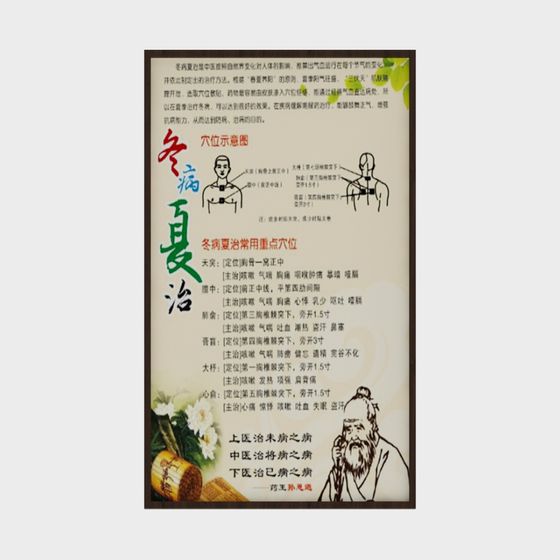 冬病夏治
冬病夏治是中医按照自然界变化对人体的影响，推算出气血运行在每个节气的变化，
并依此制定出的治疗方法。根据"春夏养阳"的原则，夏季阳气旺盛，"三伏天"肌肤
腠开泄，选取穴位敷贴，药物最容易由皮肤渗入穴位经络，能通过经络气血直达病处，所
以在夏季治疗冬病，可以达到很好的效果。在疾病缓解期服药治疗，能够鼓舞正气，增强
抗病能力，从而达到防病、治病的目的。
穴位示意图
天突（胸骨上窝正中）
膻中（前正中线）
注：
冬病夏治常用重点穴位
天突：[定位]胸骨一窝正中
[主治]咳嗽 气喘 胸痛 咽喉肿痛 暴喑 噎膈
膻中：[定位]前正中线，平第四肋间隙
[主治]咳嗽 气喘 胸痛 心悸 乳少 呕吐 噎膈
肺俞：[定位]第三胸椎棘突下，旁开1.5寸
[主治]咳嗽 气喘 吐血 潮热 盗汗 鼻塞
膏肓：[定位]第四胸椎棘突下，旁开3寸
[主治]咳嗽 气喘 肺痨 健忘 遗精 完谷不化
大杼：[定位]第一胸椎棘突下，旁开1.5寸
[主治]咳嗽 发热 项强 肩背痛
心俞：[定位]第五胸椎棘突下，旁开1.5寸
[主治]心痛 惊悸 咳嗽 吐血 失眠 盗汗
上医治未病之病
中医治将病之病
下医治已病之病
——药王孙思邈